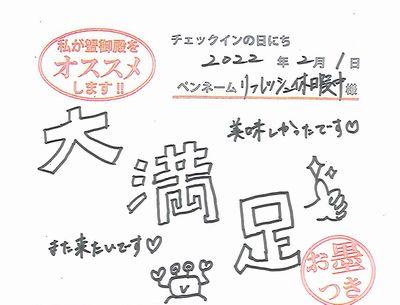 私が蟹御殿を
オススメ
します!!
チェックインの日にち
2022 年 2 月 1 日
ペンネーム リフレッシュ休暇中 様
大満足
美味しかったです♡
また来たいです♡
お墨
つき